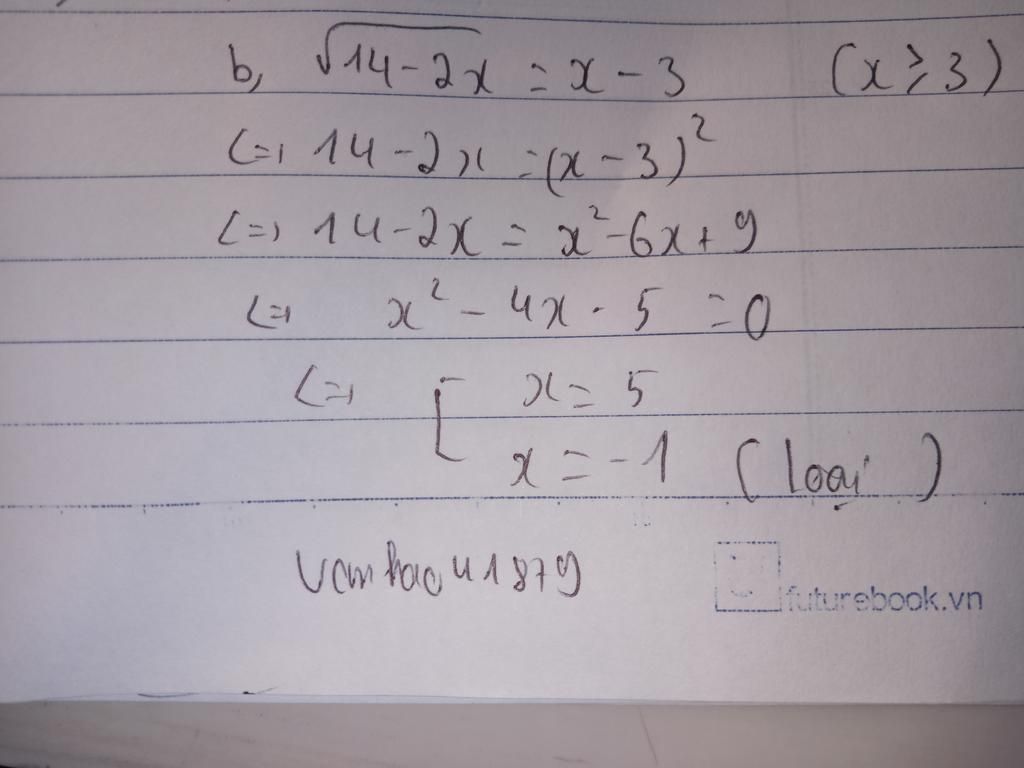 b, √14-2x = x - 3 (x ≥ 3)
<=> 14 - 2x = (x - 3)²
<=> 14 - 2x = x² - 6x + 9
<=> x² - 4x - 5 = 0
<=> [ x = 5
x = -1 (loại)
vanhao41879
futurebook.vn